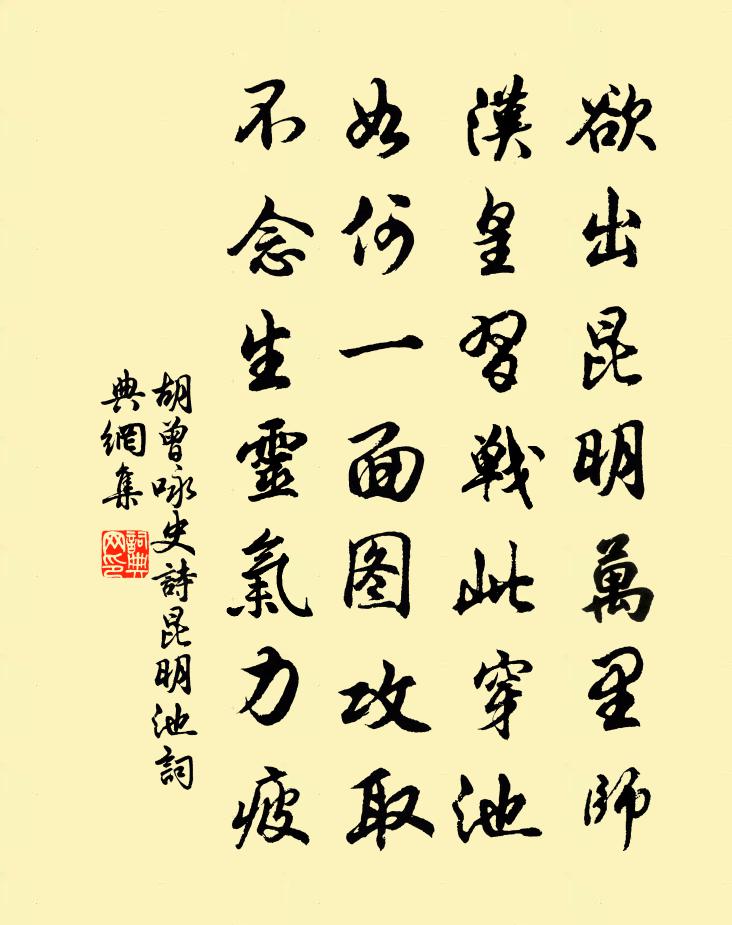 欲出昆明萬里師
漢皇習戰此穿池
如何一面图攻取
不念生靈氣力疲
胡曾咏史詩昆明池詞
典網集
詞典
网印